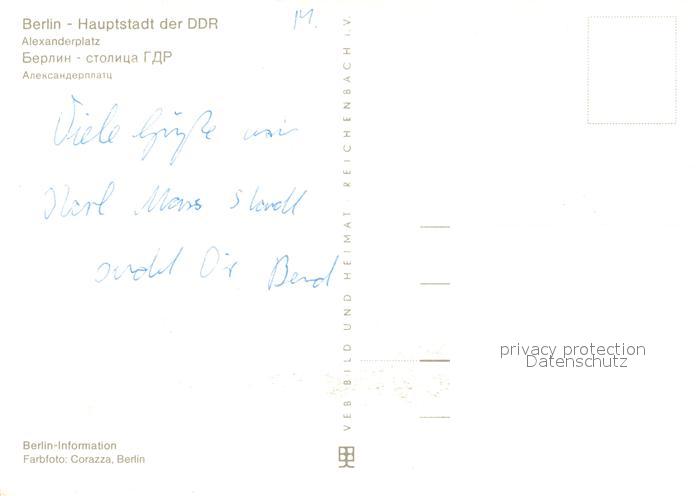 Berlin - Hauptstadt der DDR
Alexanderplatz
Берлин - столица ГДР
Александерплатц
Viele Grüße
Karl Marx Stadt
Dir Bernd
VEB BILD UND HEIMAT · REICHENBACH i.V.
privacy protection
Datenschutz
Berlin-Information
Farbfoto: Corazza, Berlin